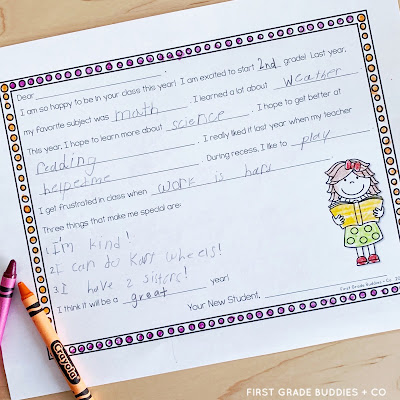 Dear
I am so happy to be in your class this year! I am excited to start 2nd grade! Last year,
my favorite subject was math. I learned a lot about weather.
This year, I hope to learn more about science. I hope to get better at
redding. I really liked it last year when my teacher
helpedme. During recess, I like to play.
I get frustrated in class when work is hars.
Three things that make me special are:
1. I'm kind!
2. I can do Kart wheels!
3. I have 2 sisters!
I think it will be a great year!
Your New Student,
First Grade Buddies + Co.
Crayola
FIRST GRADE BUDDIES + CO